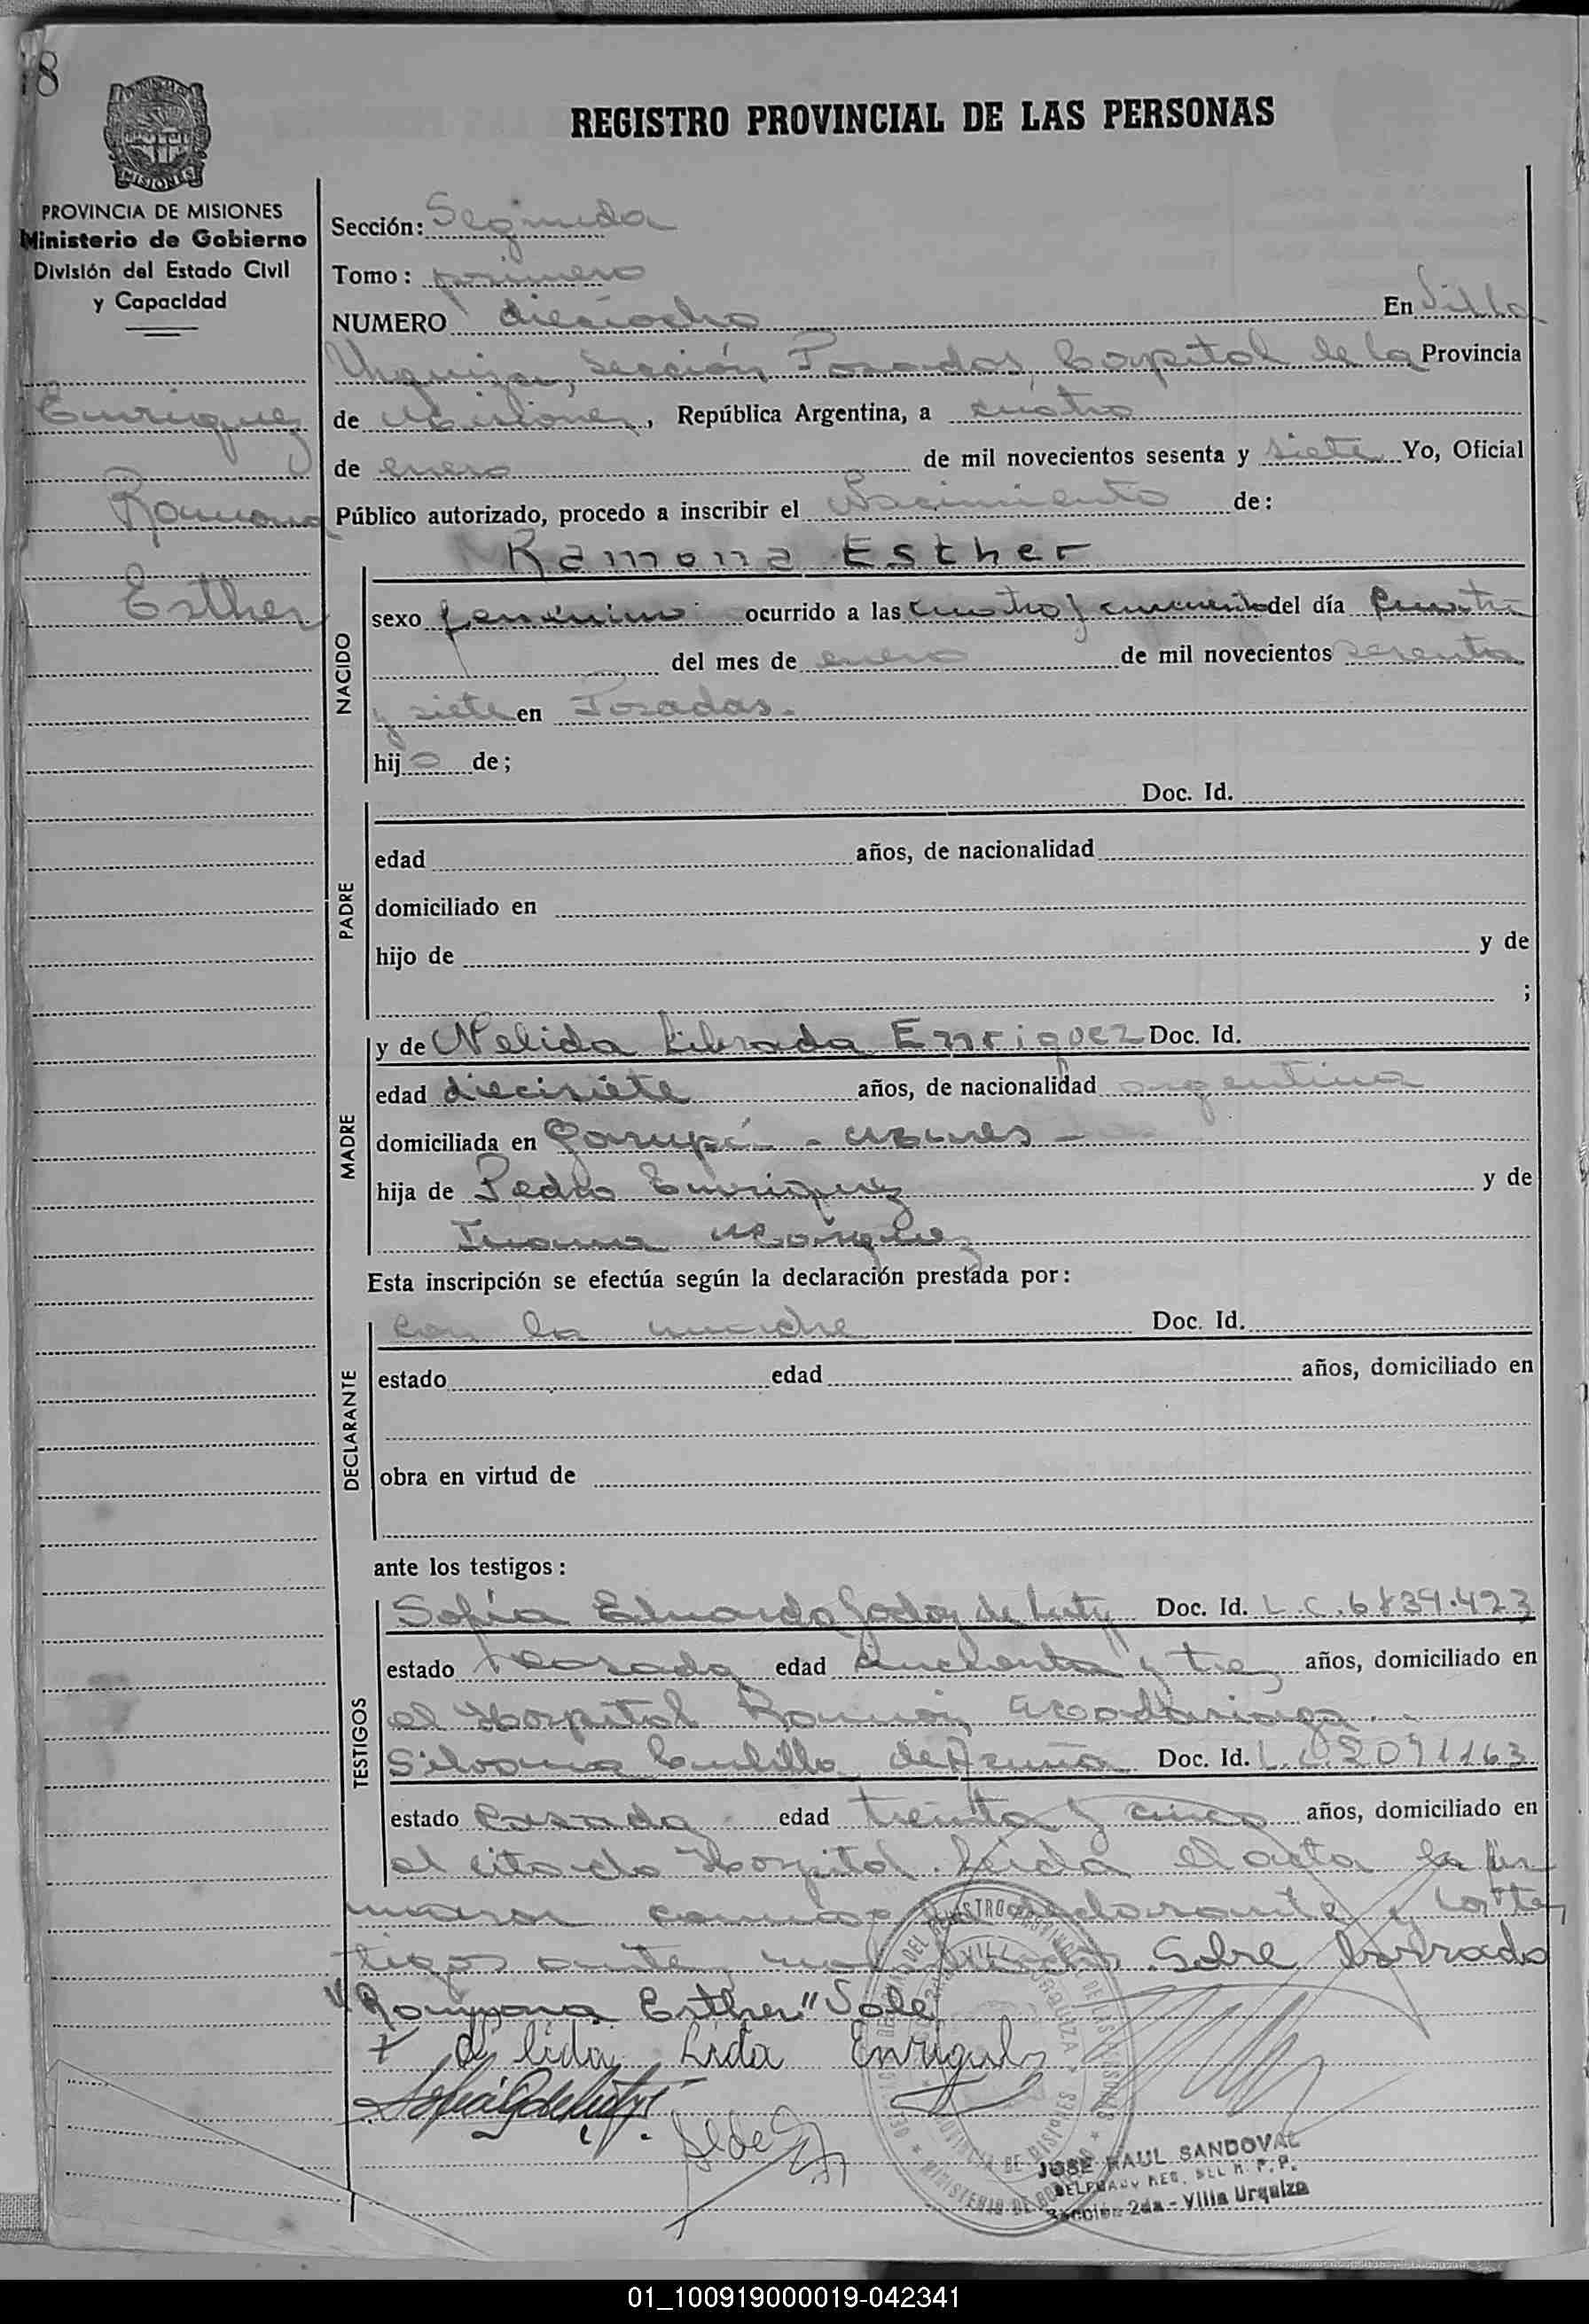 18
REGISTRO PROVINCIAL DE LAS PERSONAS
MISIONES
PROVINCIA DE MISIONES
Ministerio de Gobierno
División del Estado Civil
y Capacidad
Enriquez
Ramona
Esther
Sección: Segunda
Tomo: primero
NUMERO dieciocho En Villa
Urquiza, Sección Posadas, Capital de la Provincia
de Misiones, República Argentina, a cuatro
de enero de mil novecientos sesenta y siete Yo, Oficial
Público autorizado, procedo a inscribir el Nacimiento de:
Ramona Esther
NACIDO
sexo femenino ocurrido a las cuatro y cincuenta del día cuatro
del mes de enero de mil novecientos sesenta
y siete en Posadas.
hij a de;
PADRE
Doc. Id.
edad años, de nacionalidad
domiciliado en
hijo de y de
;
MADRE
y de Nelida Librada Enriquez Doc. Id.
edad diecisiete años, de nacionalidad argentina
domiciliada en Garupá - Mnes -
hija de Pedro Enriquez y de
Juana
Esta inscripción se efectúa según la declaración prestada por:
DECLARANTE
con la madre Doc. Id.
estado edad años, domiciliado en
obra en virtud de
ante los testigos:
TESTIGOS
Sofía Eduarda Godoy de Doc. Id. L.C. 6839.423
estado casada edad cincuenta y tres años, domiciliado en
el Hospital Ramón Madariaga.
Silvana de Acuña Doc. Id. L.C. 2091163
estado casada edad treinta y cinco años, domiciliado en
el citado Hospital. Leída el acta la fir
man conmigo la declarante y los tes
tigos ante Sobre borrado
"Ramona Esther" Vale
Enriquez
JOSE RAUL SANDOVAL
DELEGADO REG. DEL R. P. P.
Sección 2da - Villa Urquiza
01_100919000019-042341